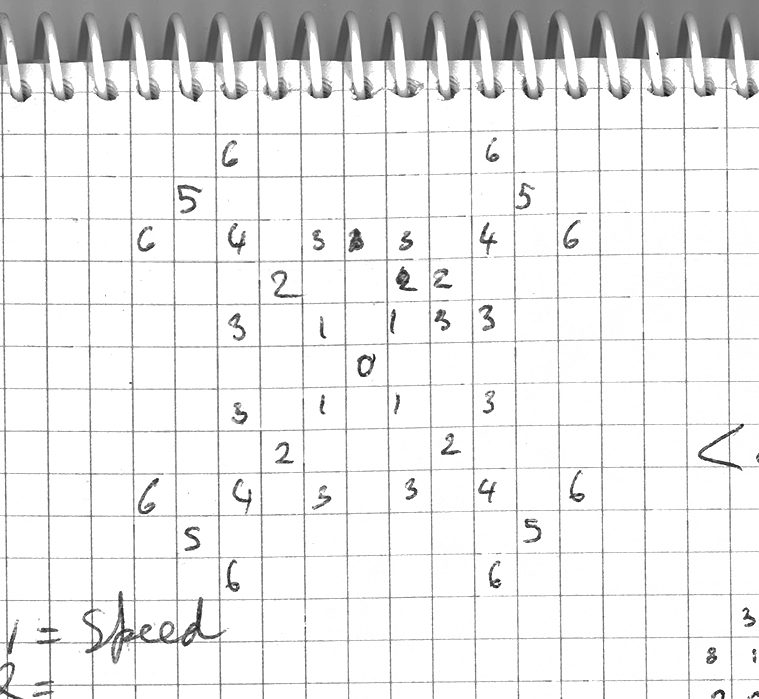 6 6
5 5
6 4 3 3 4 6
2 2 2
3 1 1 3 3
0
3 1 1 3
2 2
6 4 3 3 4 6 <
5 5
6 6
1 = Speed 3
2 = 8